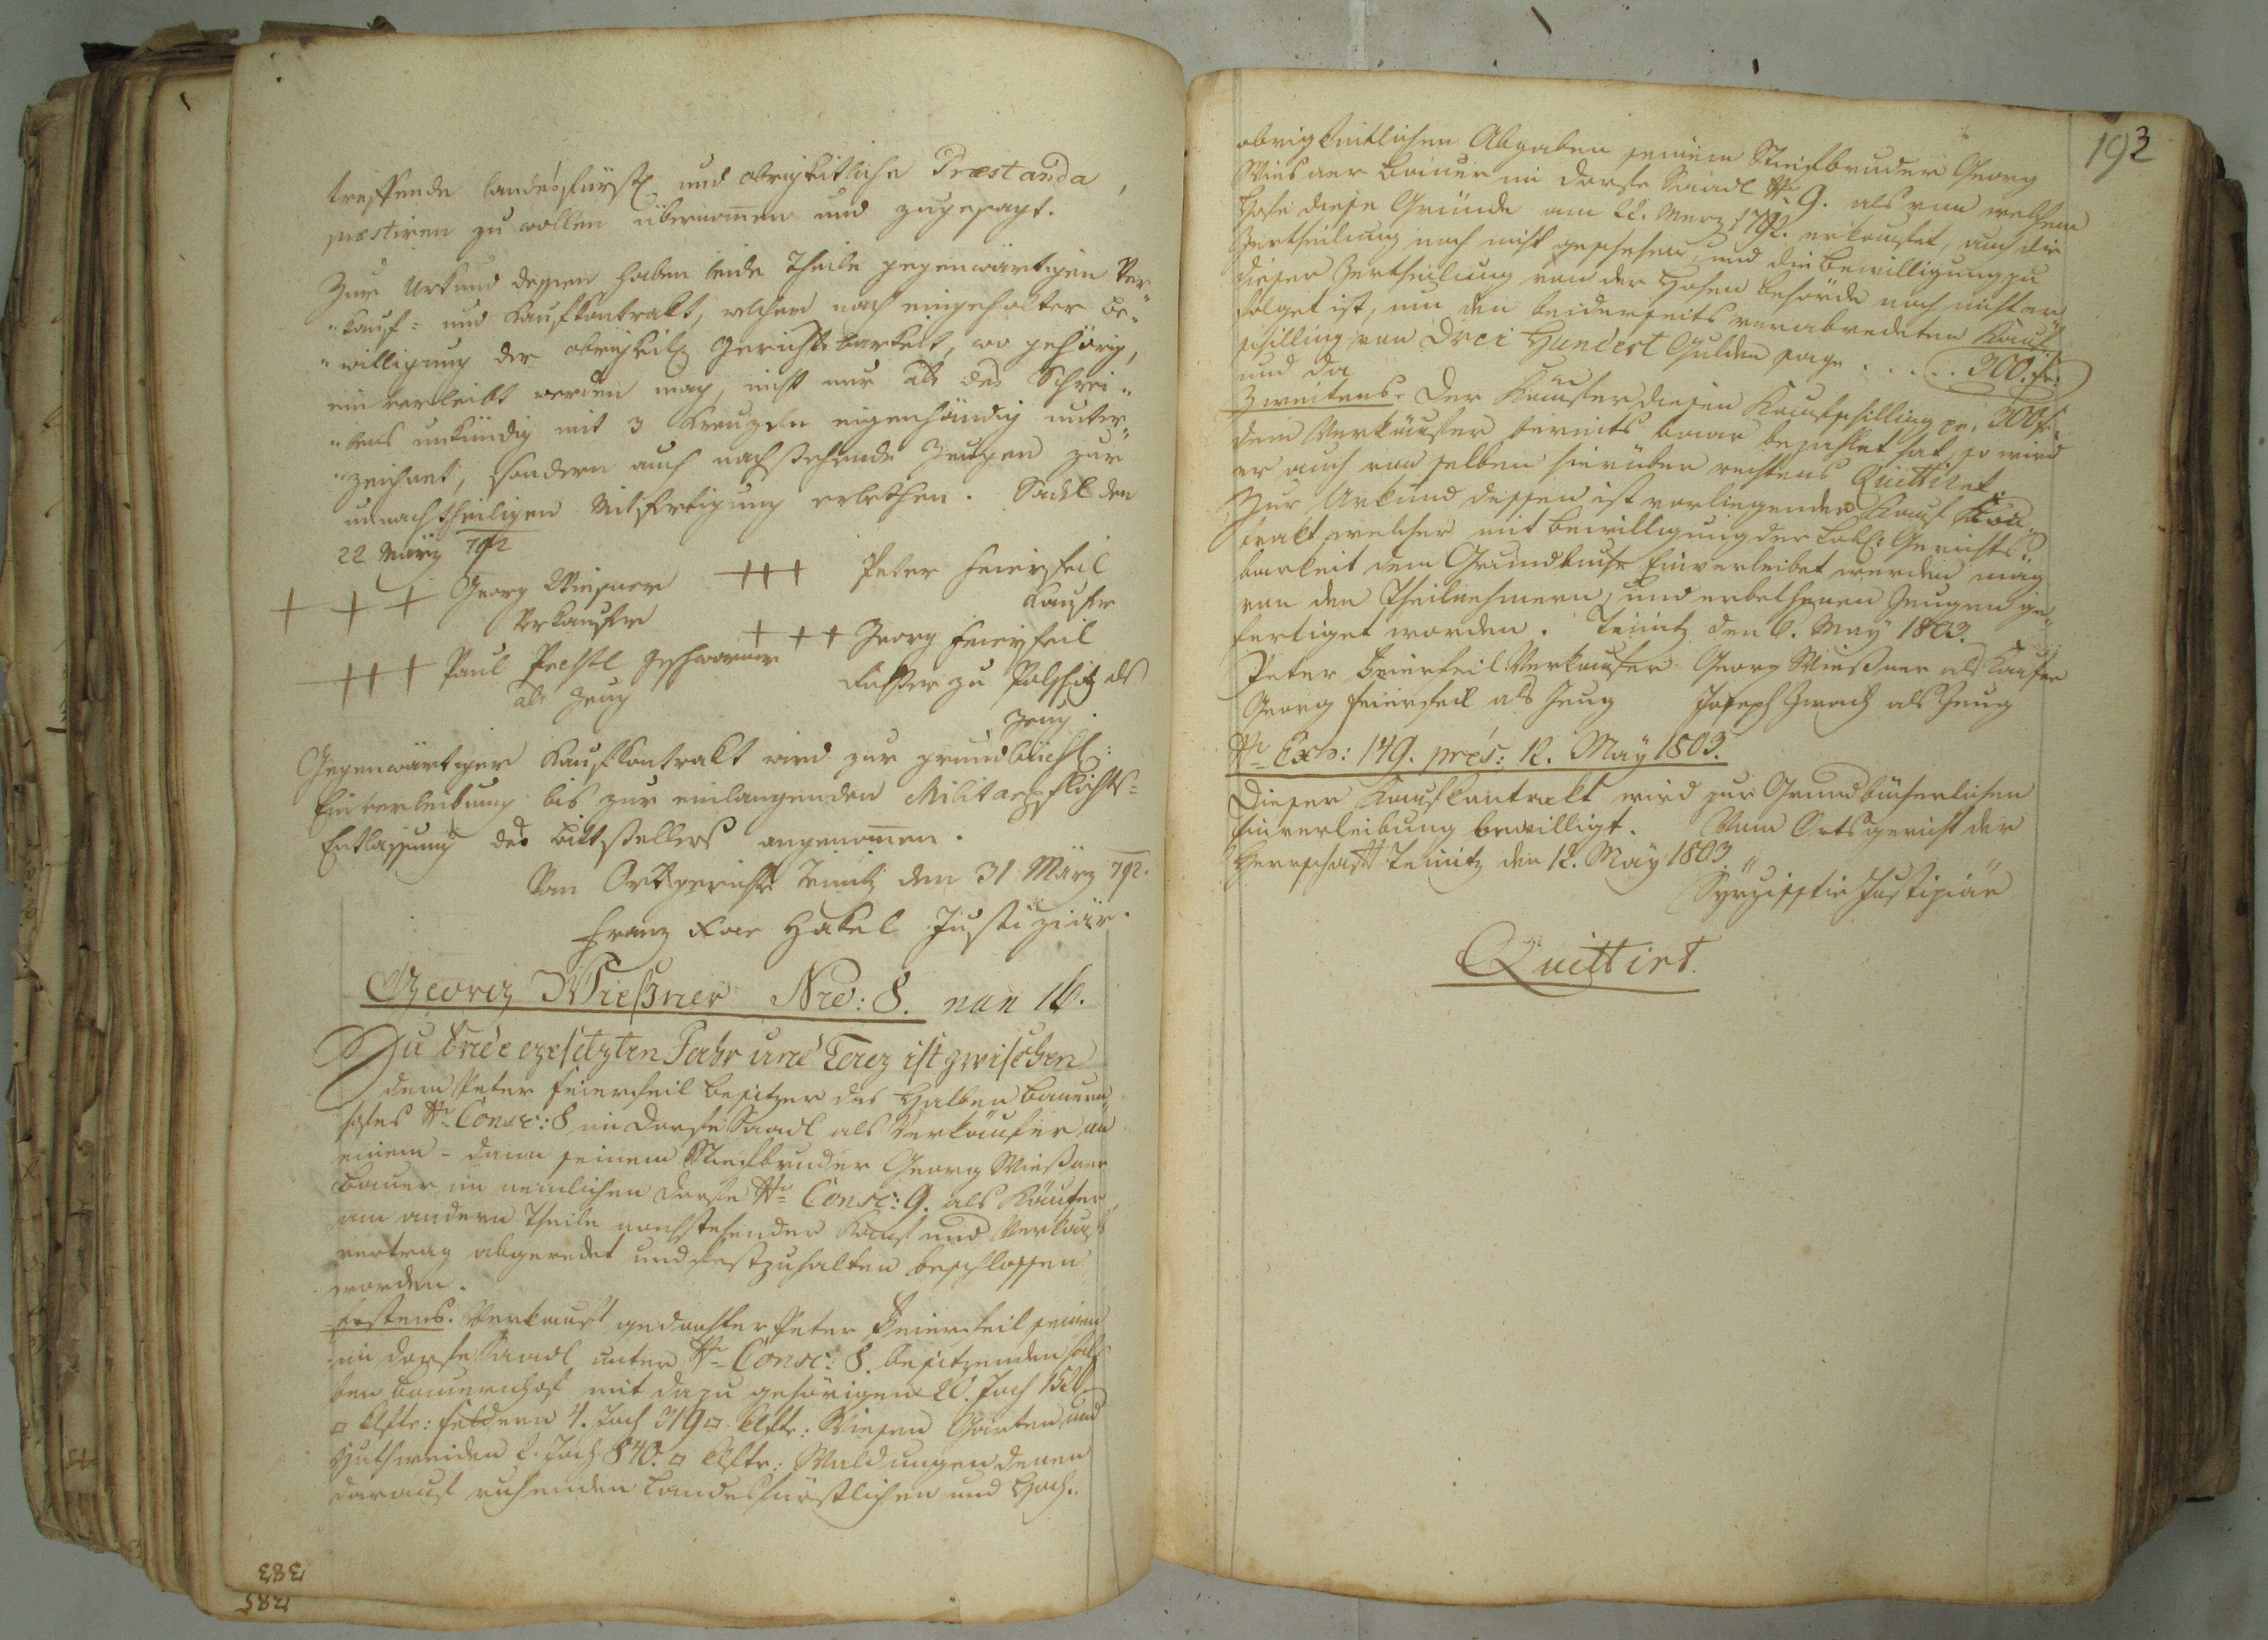 treffende landesfürstl. und obrigkeitliche Præstanda,
præstiren zu wollen übernom̅en und zugesagt.
Zur Urkund dessen haben beide Theile gegenwärtigen Ver„
„kauf= und Kaufkontrakt, welcher nach eingeholter Be„
„willigung der obrigkeitl. Gerichtsbarkeit, wo gehörig,
einverleibt werden mag, nicht nur als des Schrei„
„bens unkündig mit 3 Kreuzeln eigenhändig unter„
„zeichnet, sondern auch nachstehende Zeugen zur
unnachtheiligen Mitfertigung erbethen. Sadl den
22 März 792
+ + + Georg Wiesner +++ Peter Feierfeil
Verkaufer Kaufer
+++ Paul Pechtl Geschworner +++ Georg Feierfeil
als Zeug Richter zu als
Zeug.
Gegenwärtiger Kaufkontrakt wird zur grundbüchl:
Einverleibung bis zur einlangenden Militarpflichts=
Entlassung des Bittstellers angenom̅en.
Vom Ortsgerichte Teinitz den 31 März 792.
Franz Xver Hakel Justiziär.
Georg Wießner Nro: 8. nun 16.
Zu Ende gesetzten Jahr und Tag ist zwischen
dem Peter Feierfeil Besitzer des Halben Bauern„
hofes Nr. Consc: 8 im Dorfe Saadl als Verkäufer an
einem – dann seinem Stiefbruder Georg Wießner
Bauer im nemlichen Dorfe Nr. Consc: 9. als Käufer
am andern Theile nachstehender Kauf und Verkaufs
vertrag abgeredet und festzuhalten beschlossen
worden.
Erstens. Verkauft gedachter Peter Feierfeil seinen
im Dorfe Saadl unter Nr. Consc: 8. besitzenden hal„
ben Bauernhof mit dazu gehörigen 20. Joch
□ Klftr: Feldern 4. Joch 319 □ Klftr: Wiesen Garten und
Huthweiden 2. Joch 840. □ Klftr: Waldungen denen
darauf ruhenden Landesfürstlichen und Hoch„
383
285
192
obrigkeitlichen Abgaben seinem Stiefbruder Georg
Wiesner Bauer im Dorfe Saadl Nr. 9. als von welchem
Hofe diese Gründe am 22. Merz 1792. erkaufet, auch die
Zertheilung noch nicht geschehen, und die Bewilligung zu
dieser Zertheilung von der Hohen Behörde noch nicht er„
folget ist, um den beiderseits verabredeten Kauf„
schilling von Drei Hundert Gulden sage . . . . . 300. fr.
und da
Zweitens. Der Käufer diesen Kaufschilling pr. 300 fr.
dem Verkäufer bereits baar bezahlet hat, so wird
er auch von selben hierüber rechtens Quittiret.
Zur Urkund dessen ist vorliegender Kauf Kon„
trakt, welcher mit Bewilligung der Löbl: Gerichts„
barkeit dem Grundbuche Einverleibet werden mag
von den Theilnehmern, und erbethenen Zeugen ge„
fertiget worden. Teinitz den 6. May 1803.
Peter Feierfeil Verkaufer Georg Wießner als Kaufer
Georg Feierfeil als Zeug Joseph Zwach als Zeug
Nr. Exh: 149. prés: 12. May 1803.
Dieser Kaufkontrakt wird zur Grundbücherlichen
Einverleibung bewilligt. Vom Ortsgericht der
Herrschaft Teinitz den 12. May 1803.
Justiziär
Quittirt.